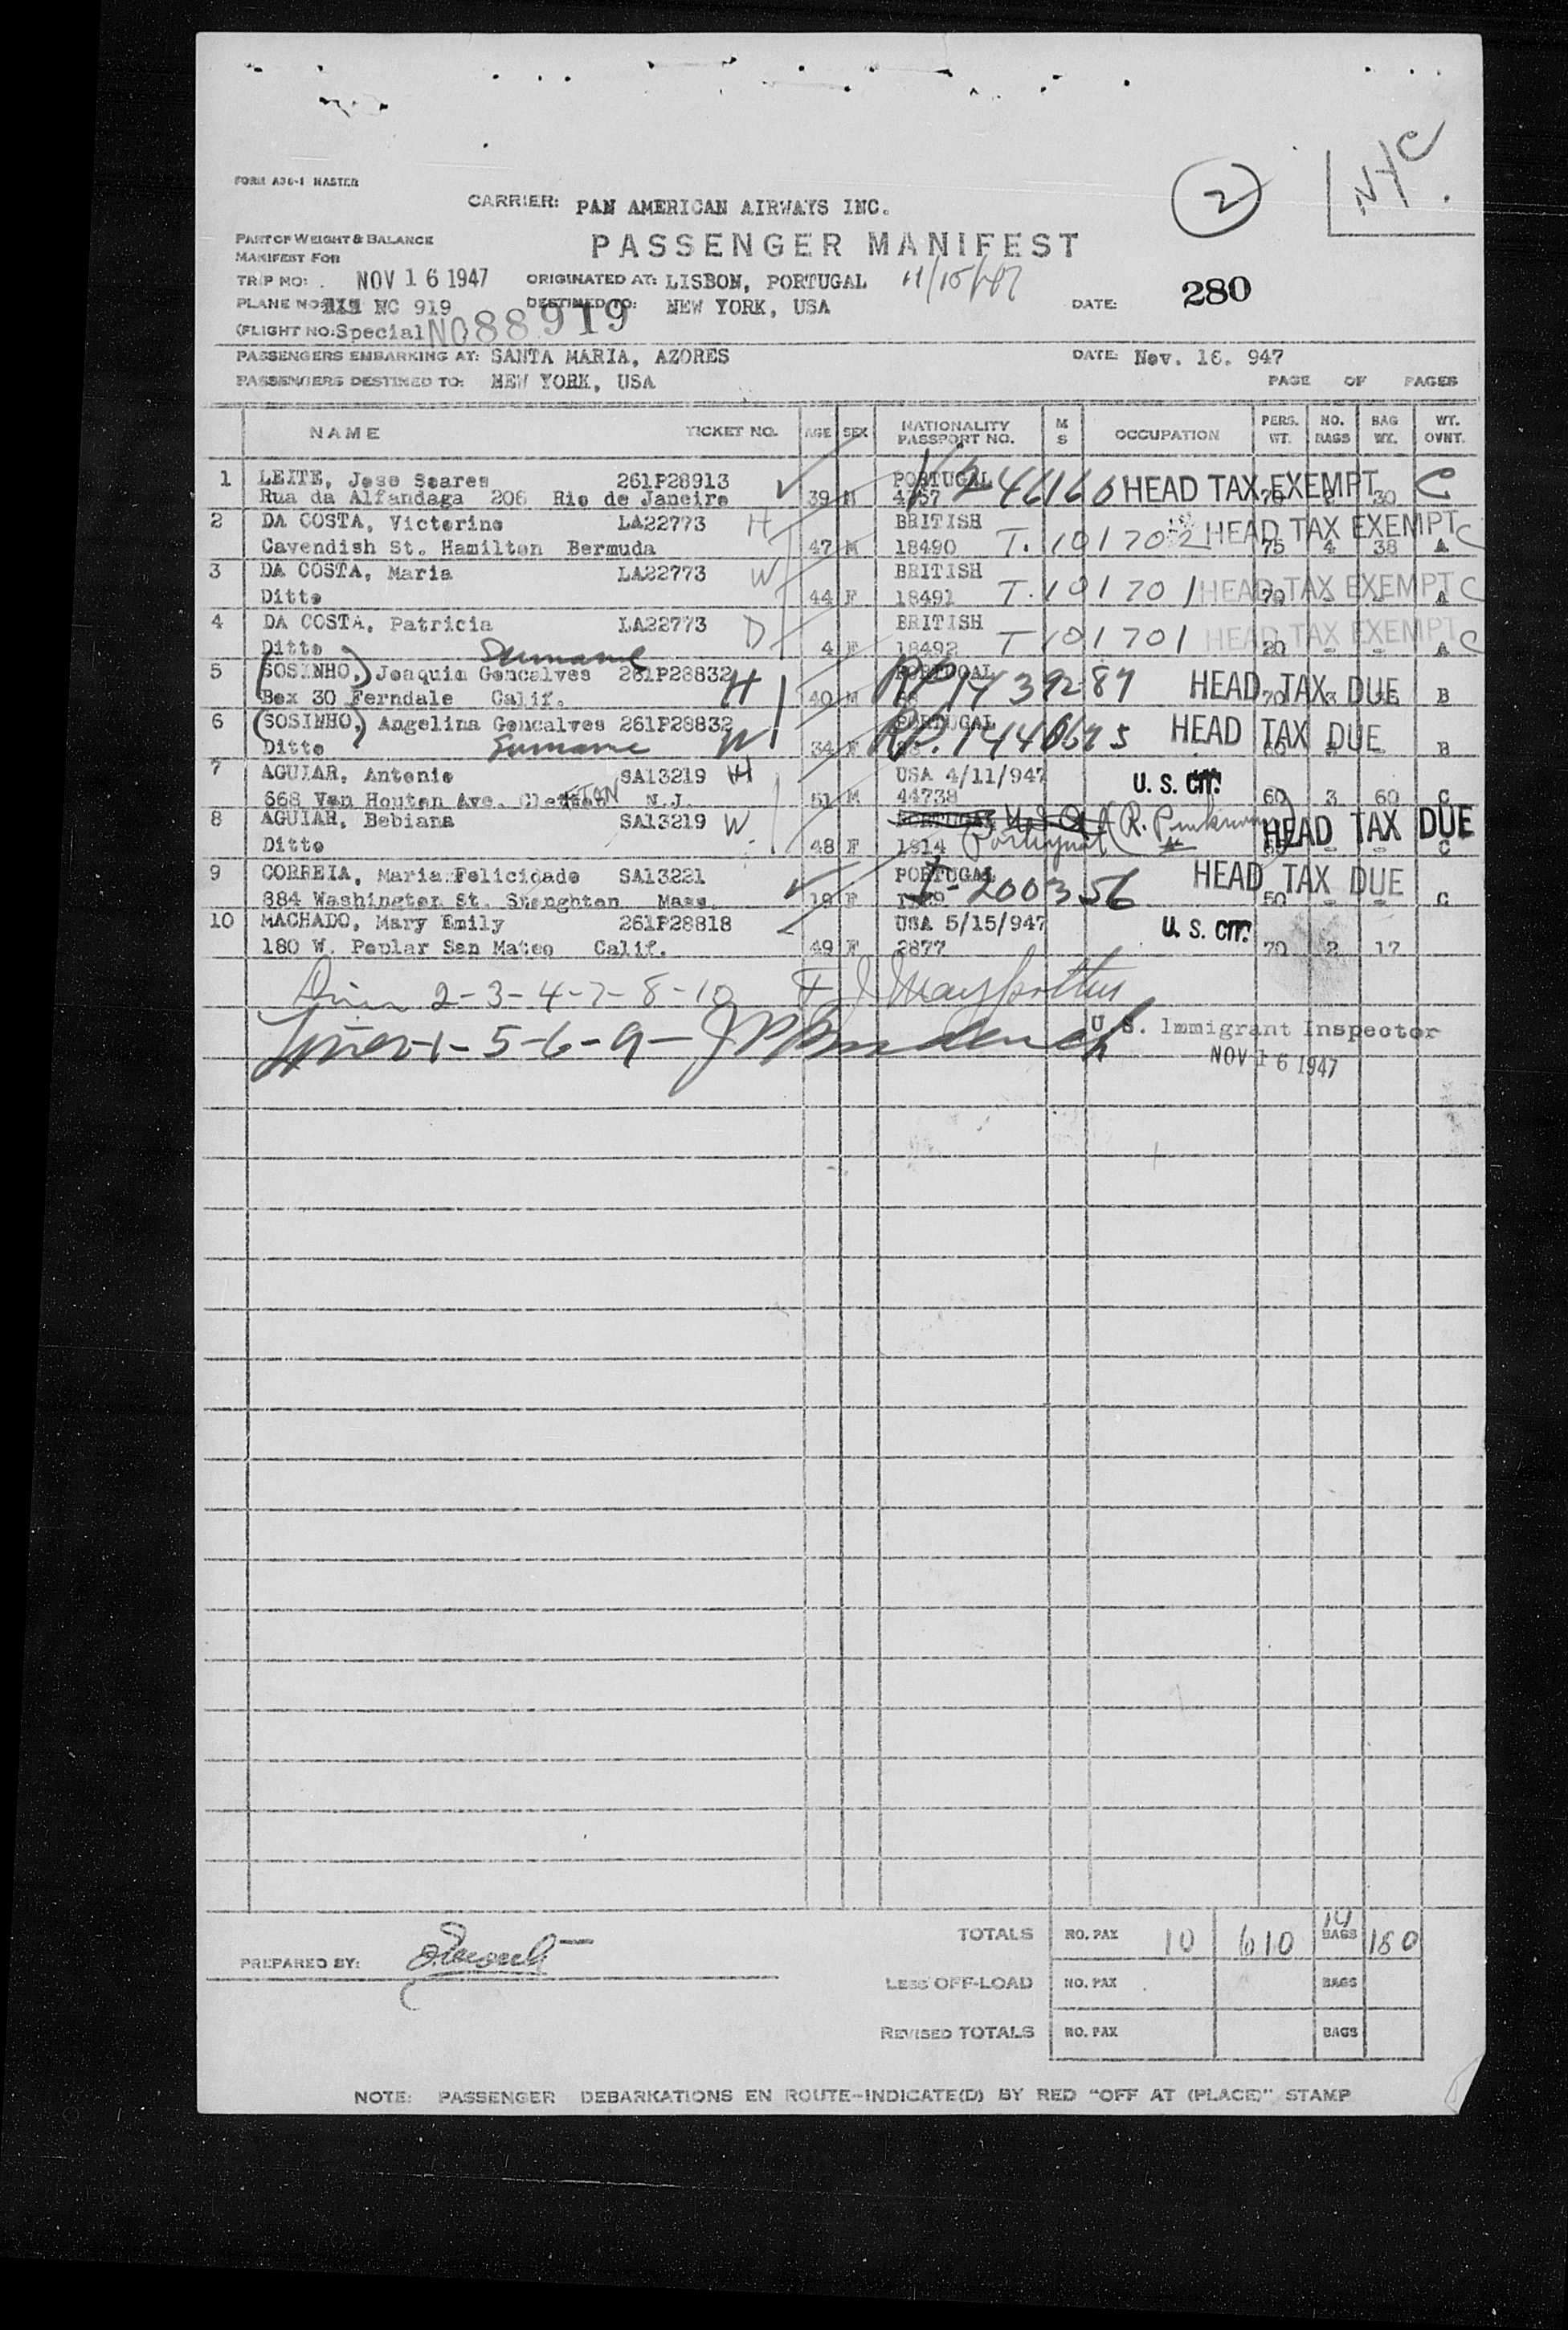 NYC
2
FORM A36-1 MASTER
CARRIER: PAN AMERICAN AIRWAYS INC.
PART OF WEIGHT & BALANCE
MANIFEST FOR
PASSENGER MANIFEST
TRIP NO: NOV 16 1947 ORIGINATED AT: LISBON, PORTUGAL
PLANE NO: NC 919 DESTINED TO: NEW YORK, USA DATE: 280
(FLIGHT NO: Special NO 88919
PASSENGERS EMBARKING AT: SANTA MARIA, AZORES DATE: Nov. 16. 947
PASSENGERS DESTINED TO: NEW YORK, USA PAGE OF PAGES
NAME TICKET NO. AGE SEX NATIONALITY PASSPORT NO. M S OCCUPATION PERS. WT. NO. BAGS BAG WT. WT. OVNT.
1 LEITE, Jose Soares 261P28913 PORTUGAL 246160 HEAD TAX EXEMPT C
Rua da Alfandaga 206 Rio de Janeiro 39 M 4757 70 30
2 DA COSTA, Victorino LA22773 H BRITISH T. 101702 HEAD TAX EXEMPT C
Cavendish St. Hamilton Bermuda 47 M 18490 75 4 38 A
3 DA COSTA, Maria LA22773 W BRITISH T. 101701 HEAD TAX EXEMPT C
Ditto 44 F 18491 70 - - A
4 DA COSTA, Patricia LA22773 D BRITISH T 101701 HEAD TAX EXEMPT C
Ditto 4 F 18492 20 - - A
Surname
5 (SOSINHO,) Joaquim Goncalves 261P28832 H PORTUGAL RP 1439287 HEAD TAX DUE
Box 30 Ferndale Calif. 40 M 70 3 B
6 (SOSINHO,) Angelina Goncalves 261P28832 W PORTUGAL RP. HEAD TAX DUE
Ditto Surname 34 F B
7 AGUIAR, Antonio SA13219 H USA 4/11/947 U. S. CIT.
668 Van Houten Ave. N.J. 51 M 44738 60 3 60 C
8 AGUIAR, Bebiana SA13219 W PORTUGAL HEAD TAX DUE
Ditto 48 F 1814 Portugal - - C
9 CORREIA, Maria Felicidade SA13221 PORTUGAL T-200356 HEAD TAX DUE
884 Washington St. Stoughton Mass. 19 F 50 - - C
10 MACHADO, Mary Emily 261P28818 USA 5/15/947 U. S. CIT.
180 W. Poplar San Mateo Calif. 49 F 2877 70 2 17
2-3-4-7-8-10
1-5-6-9-
U. S. Immigrant Inspector
NOV 16 1947
TOTALS NO. PAX 10 610 14 BAGS 180
PREPARED BY:
LESS OFF-LOAD NO. PAX BAGS
REVISED TOTALS NO. PAX BAGS
NOTE: PASSENGER DEBARKATIONS EN ROUTE-INDICATE(D) BY RED "OFF AT (PLACE)" STAMP